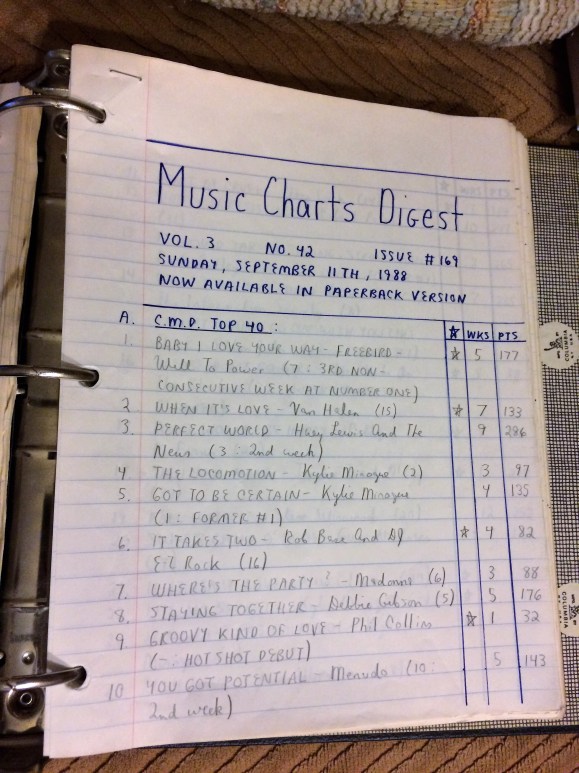 Music Charts Digest
VOL. 3 NO. 42 ISSUE #169
SUNDAY, SEPTEMBER 11TH, 1988
NOW AVAILABLE IN PAPERBACK VERSION
A. C.M.D. TOP 40 : ☆ WKS PTS
1. BABY I LOVE YOUR WAY - FREEBIRD - ☆ 5 177
Will To Power (7 : 3RD NON-
CONSECUTIVE WEEK AT NUMBER ONE)
2 WHEN IT'S LOVE - Van Halen (15) ☆ 7 133
3. PERFECT WORLD - Huey Lewis And The 9 286
News (3 : 2nd week)
4 THE LOCOMOTION - Kylie Minogue (2) 3 97
5. GOT TO BE CERTAIN - Kylie Minogue 4 135
(1 : FORMER #1)
6. IT TAKES TWO - Rob Base And DJ ☆ 4 82
E-Z Rock (16)
7. WHERE'S THE PARTY? - Madonna (6) 3 88
8. STAYING TOGETHER - Debbie Gibson (5) 5 176
9. GROOVY KIND OF LOVE - Phil Collins ☆ 1 32
(- : HOT SHOT DEBUT)
10 YOU GOT POTENTIAL - Menudo (10 : 5 143
2nd week)
COLUMBIA
COLUMBIA